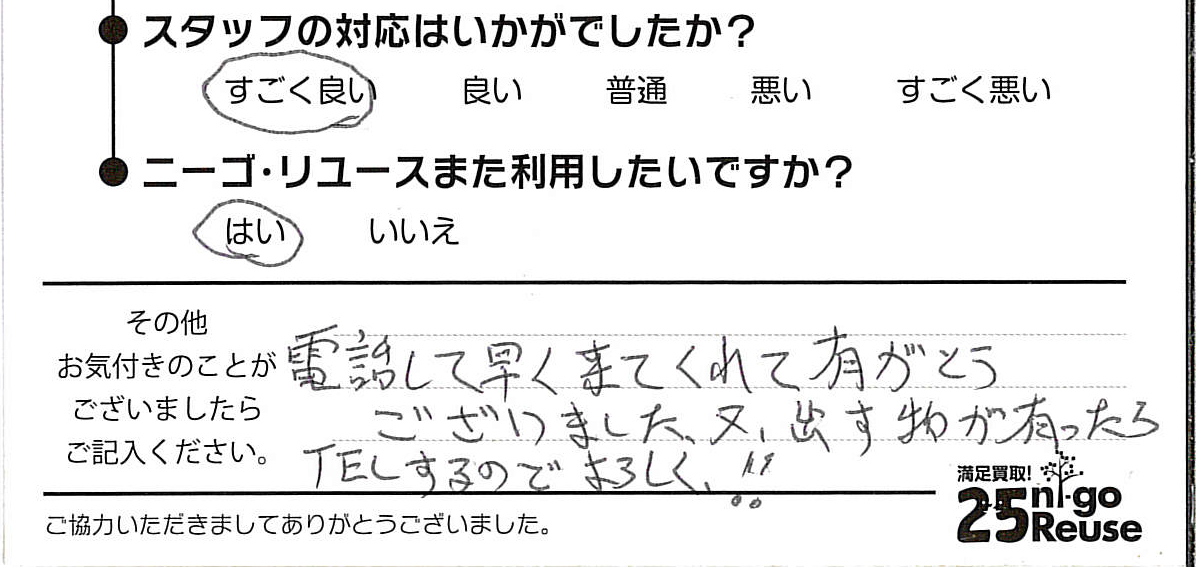 スタッフの対応はいかがでしたか？
すごく良い 良い 普通 悪い すごく悪い
ニーゴ・リユースまた利用したいですか？
はい いいえ
その他
お気付きのことが
ございましたら
ご記入ください。
電話して早く来てくれて有がとう
ございました、又、出す物が有ったら
TELするのでよろしく、!!
満足買取!
25 ni-go
Reuse
ご協力いただきましてありがとうございました。